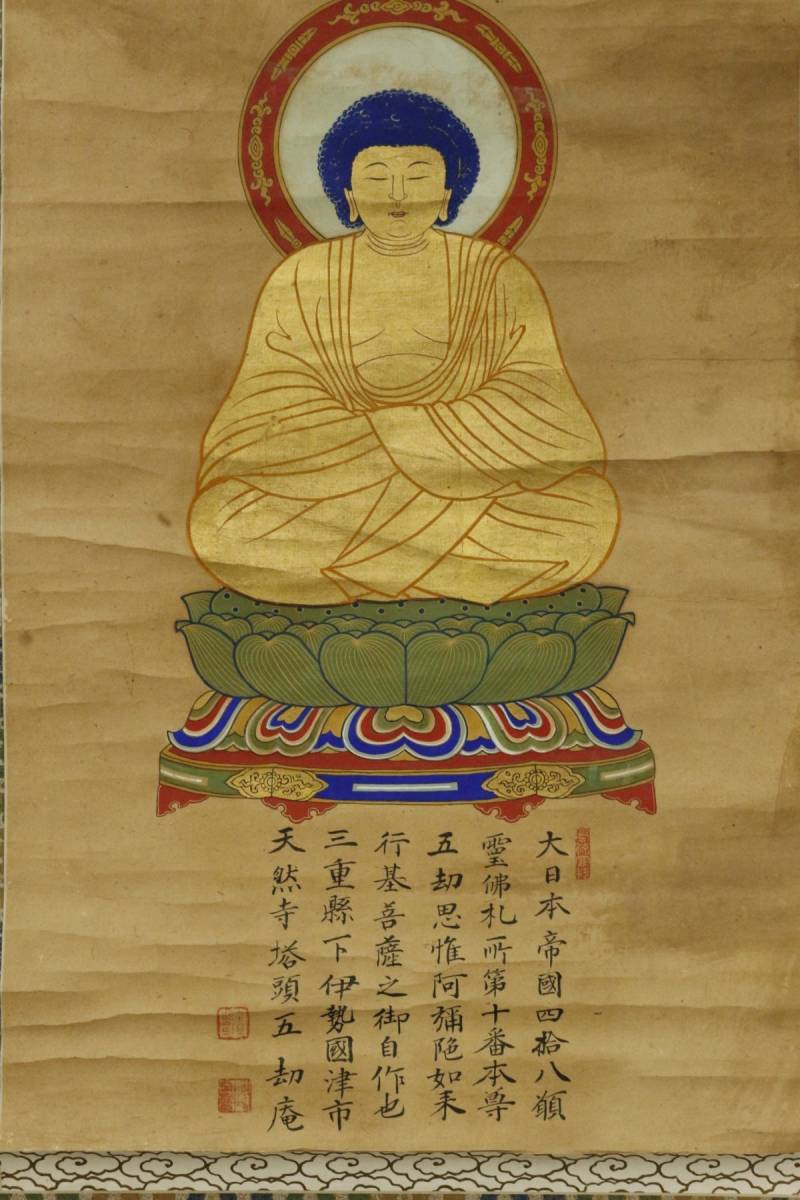 大日本帝國四拾八願
靈佛札所第十番本尊
五劫思惟阿彌陀如来
行基菩薩之御自作也
三重縣下伊勢國津市
天然寺塔頭五劫庵